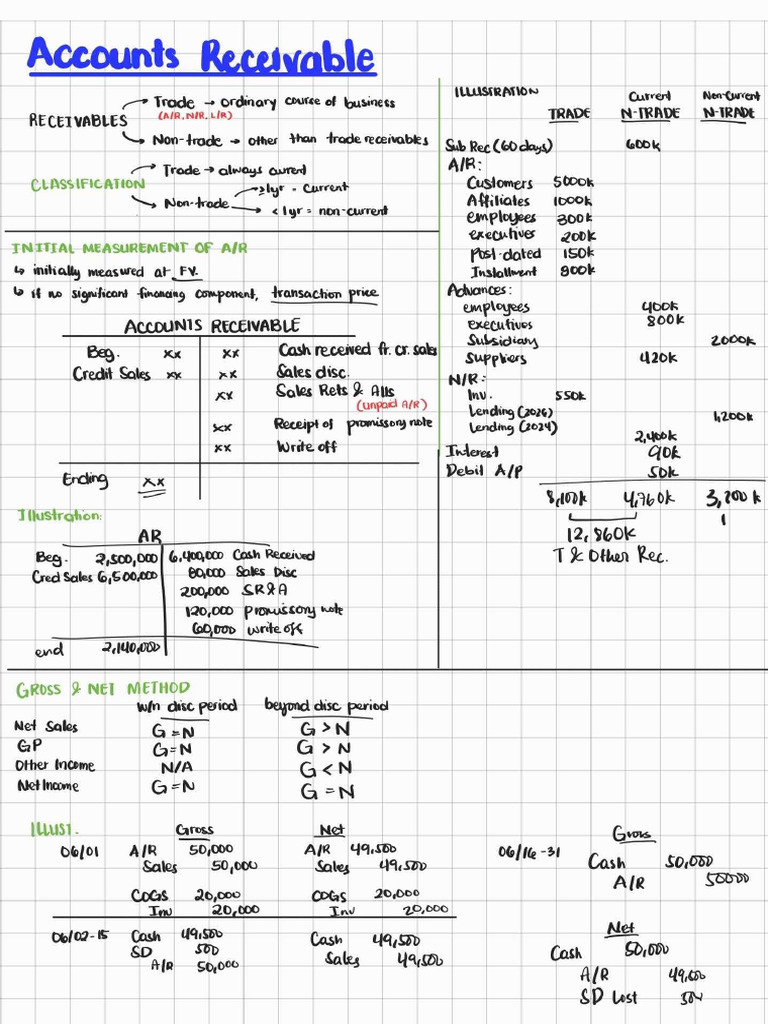 Accounts Receivable
RECEIVABLES
Trade → ordinary course of business
(A/R, N/R, L/R)
Non-trade → other than trade receivables
CLASSIFICATION
Trade → always current
Non-trade
≥1yr = current
< 1yr = non-current
INITIAL MEASUREMENT OF A/R
↳ initially measured at FV.
↳ if no significant financing component, transaction price
ACCOUNTS RECEIVABLE
Beg. xx xx Cash received fr. cr. sales
Credit Sales xx xx Sales disc.
xx Sales Rets & Alls
(unpaid A/R)
xx Receipt of promissory note
xx Write off
Ending xx
Illustration:
AR
Beg. 2,500,000 6,400,000 Cash Received
Cred Sales 6,500,000 80,000 Sales Disc
200,000 SR&A
120,000 promissory note
60,000 write off
end 2,140,000
ILLUSTRATION
Current Non-Current
TRADE N-TRADE N-TRADE
Sub Rec (60 days) 600k
A/R:
Customers 5000k
Affiliates 1000k
employees 300k
executives 200k
Post-dated 150k
Installment 900k
Advances:
employees 400k
executives 800k
Subsidiary 2000k
Suppliers 420k
N/R:
Inv. 550k
Lending (2026) 1,200k
Lending (2024) 2,400k
Interest 90k
Debit A/P 50k
8,100k 4,760k 3,200k
12,860k
T & Other Rec.
GROSS & NET METHOD
w/n disc period beyond disc period
Net Sales G = N G > N
GP G = N G > N
Other Income N/A G < N
Net Income G = N G = N
ILLUST.
Gross Net
06/01 A/R 50,000 A/R 49,500
Sales 50,000 Sales 49,500
COGS 20,000 COGS 20,000
Inv 20,000 Inv 20,000
06/02-15 Cash 49,500 Cash 49,500
SD 500 Sales 49,500
A/R 50,000
Gross
06/16-31 Cash 50,000
A/R 50000
Net
Cash 50,000
A/R 49,500
SD Lost 500